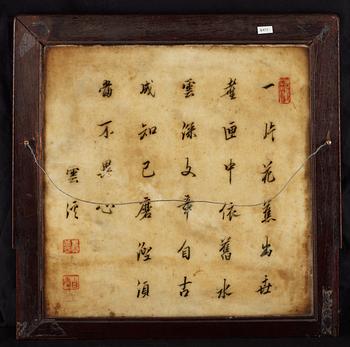 一片花蕉出
匣中依舊水
雲深文章自古
成知己磨涅須
當不異心
雲溪